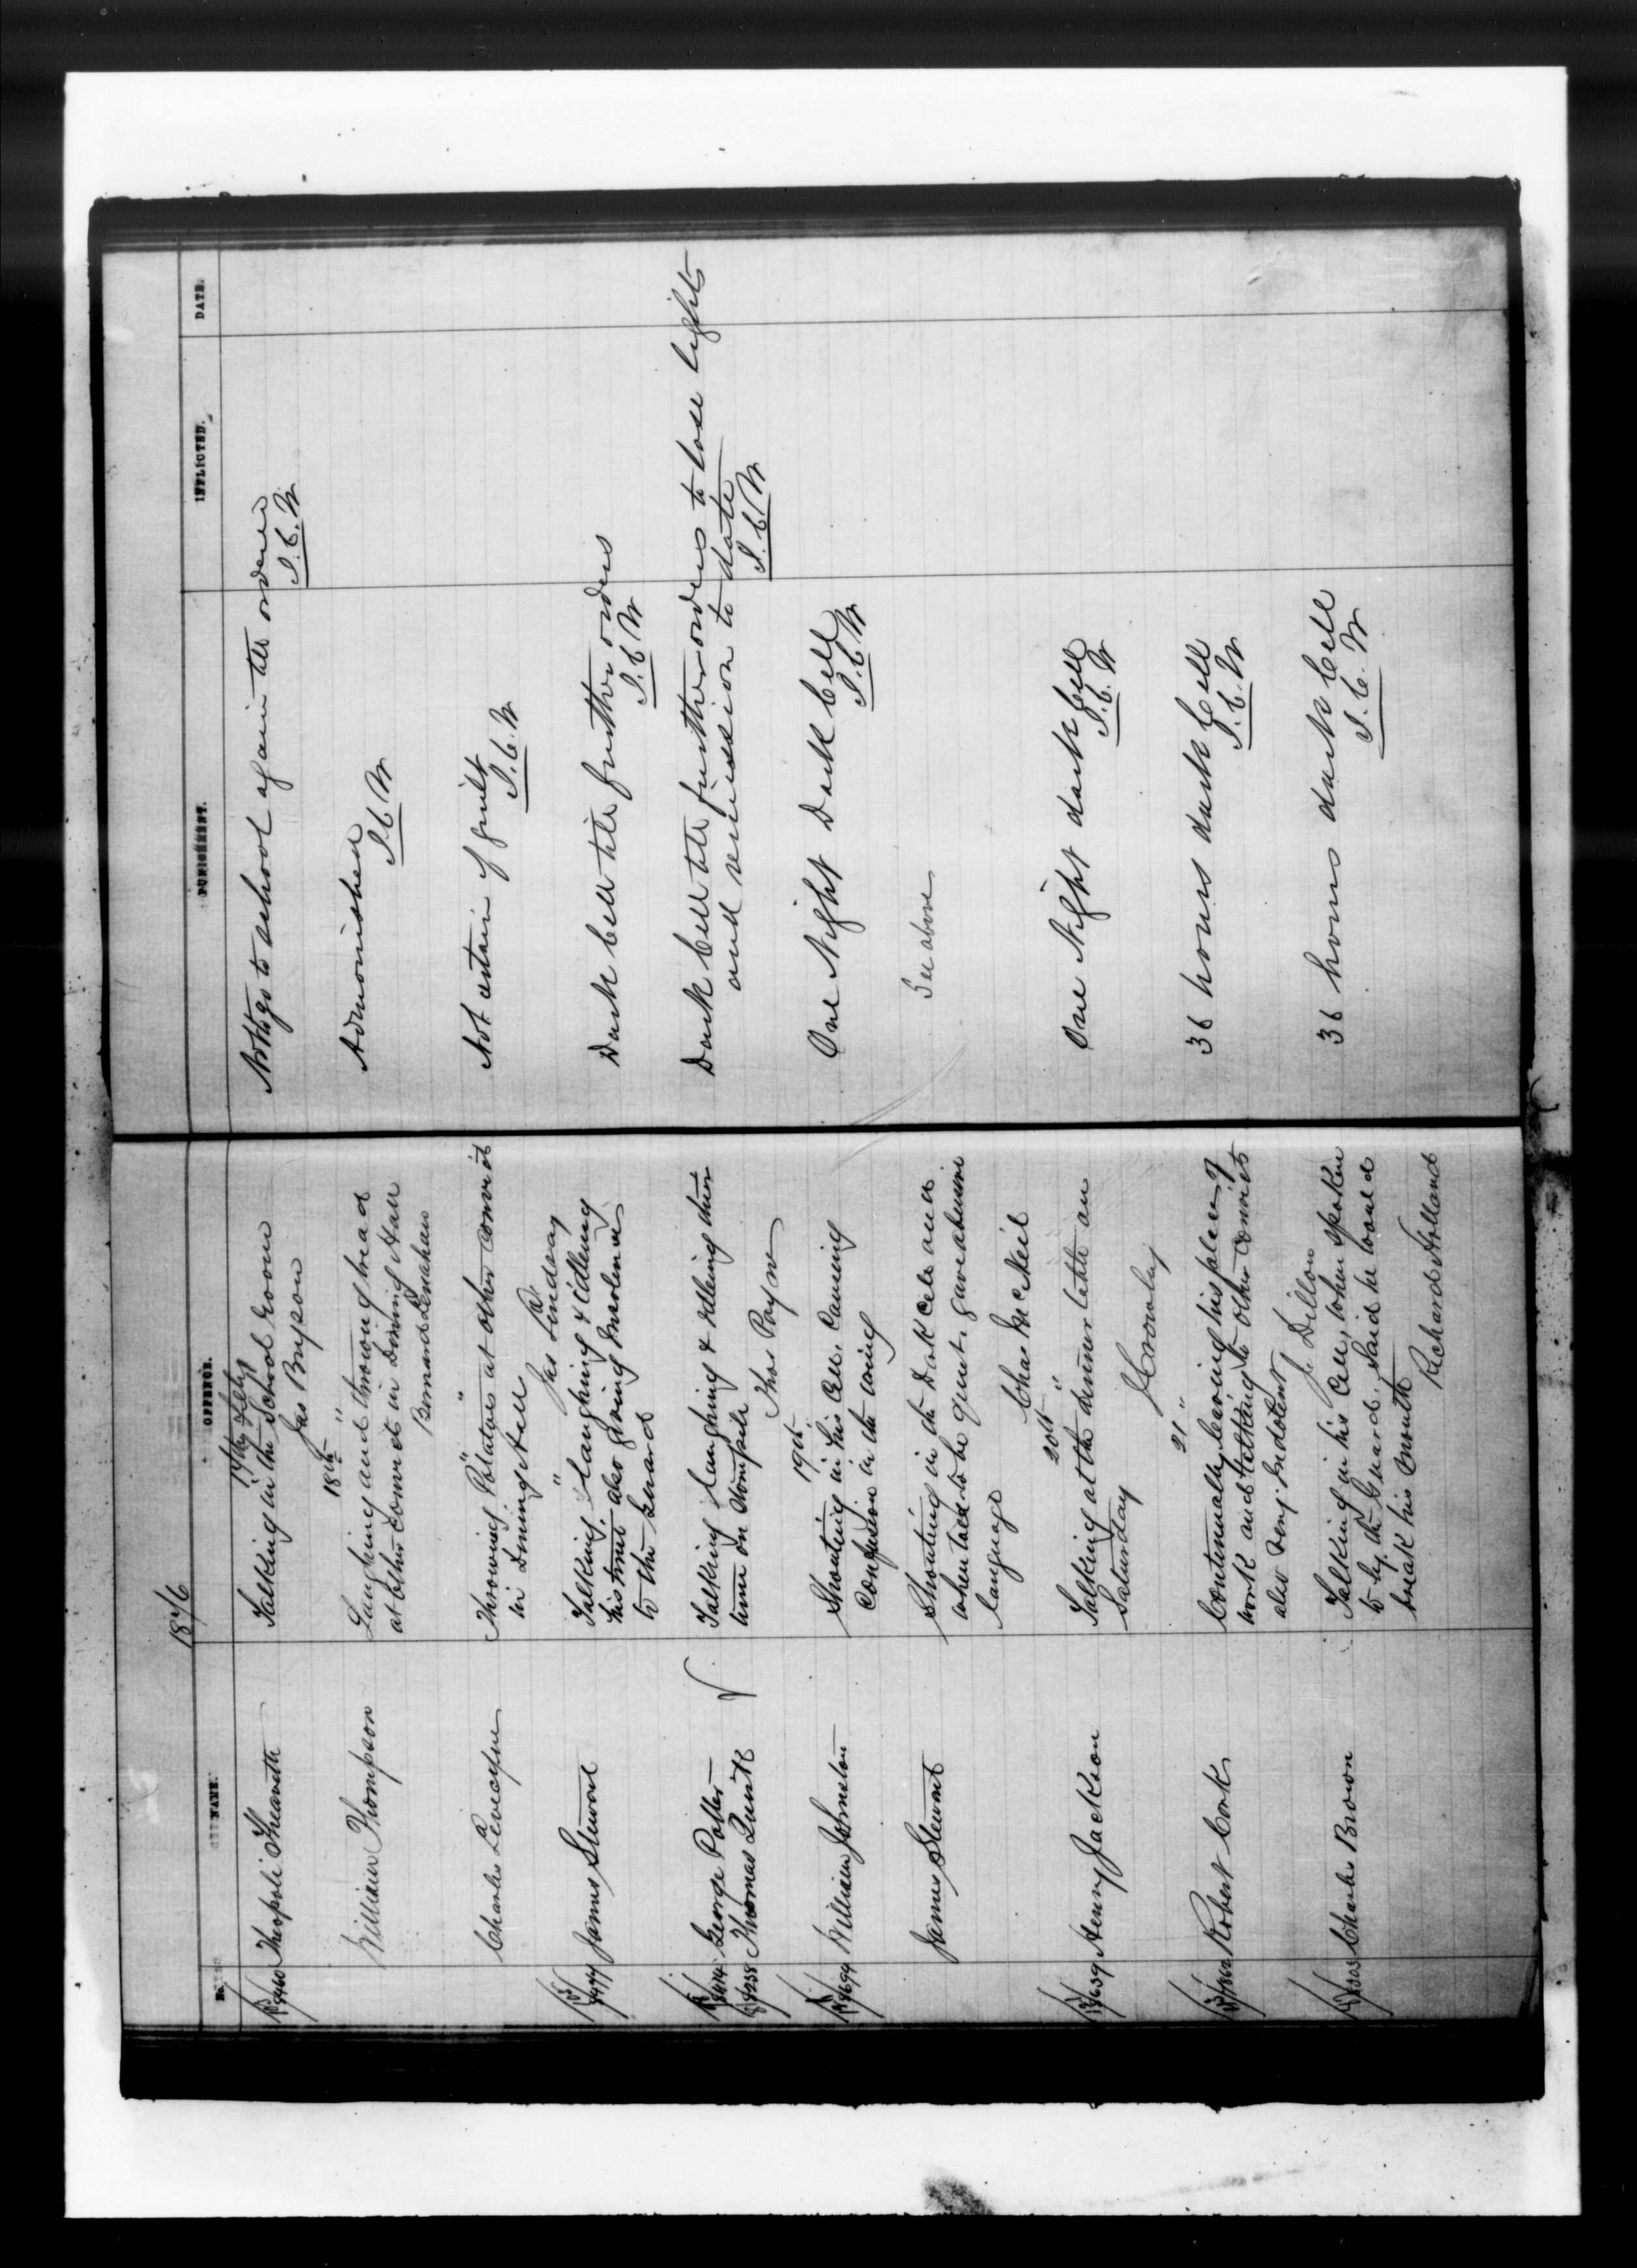 1876
No. NAME. OFFENCE. PUNISHMENT. INFLICTED. DATE.
17th Feby
Talking in the School Room
Jas Bryson
Not to go to school again till orders
J.C.W
18th "
William Thompson
Laughing and throwing bread
at other Convicts in Dining Hall
Bernard Lenahan
Admonished
J.C.W
"
Charles
Throwing Potatoes at other Convicts
in Dining Hall
Jas Lindsay
Not certain of guilt
J.C.W
"
James Stewart
Talking, laughing & idleing
his time also giving insolence
to the Guard
Dark Cell till further orders
J.C.W
George Potter
Thomas Quirk
Talking laughing & idleing their
time on
Thos Payne
Dark Cell till further orders to lose lights
and remission to date
J.C.W
19th "
William Johnston
Shouting in his Cell. Causing
Confusion in the wing
One Night Dark Cell
J.C.W
James Stewart
Shouting in the Dark Cell and
when told to be quiet. gave abusive
language
Chas McNeil
See above
20th "
9639 Henry Jackson
Talking at the dinner table on
Saturday
Crowley
One Night dark Cell
J.C.W
21 "
Robert Cork
Continually leaving his place of
work and talking to other Convicts
also very Indolent
J. Dillon
36 hours dark Cell
J.C.W
Charles Brown
Talking in his Cell, when spoken
to by the Guard. Said he would
break his mouth
Richard Holland
36 hours dark Cell
J.C.W